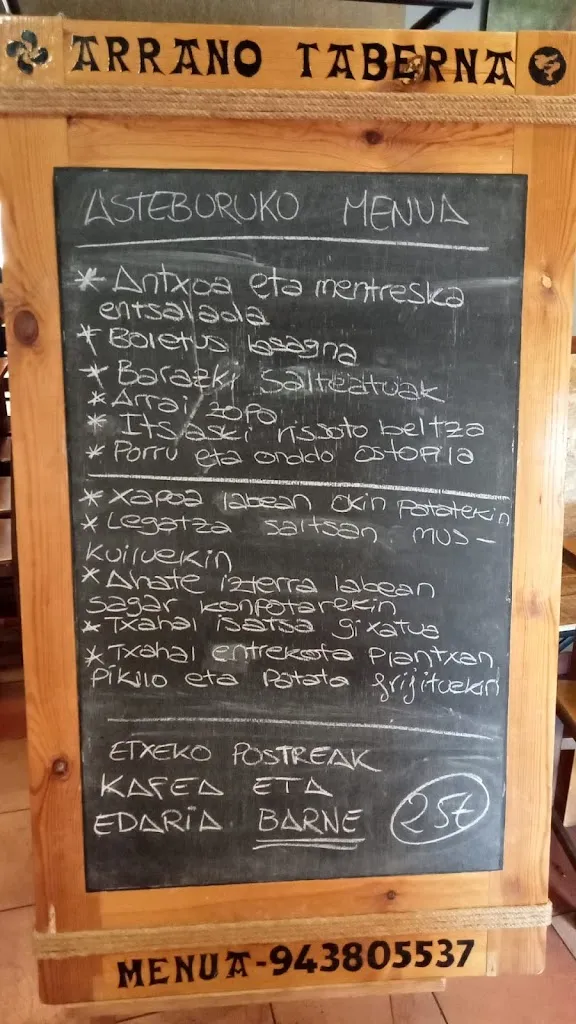 ARRANO TABERNA
ASTEBURUKO MENUA
* Antxoa eta mentreska
entsalada
* Boletus lasagna
* Barazki salteatuak
* Arrai zopa
* Itsaski rissoto beltza
* Porru eta onddo ostopila
* Xapoa labean okin patatekin
* Legatza saltsan mus-
kuiluekin
* Ahate izterra labean
sagar konpotarekin
* Txahal isatsa gixatua
* Txahal entrekota plantxan,
pikillo eta patata frijituekin
ETXEKO POSTREAK
KAFEA ETA
EDARIA BARNE 25€
MENUA-943805537